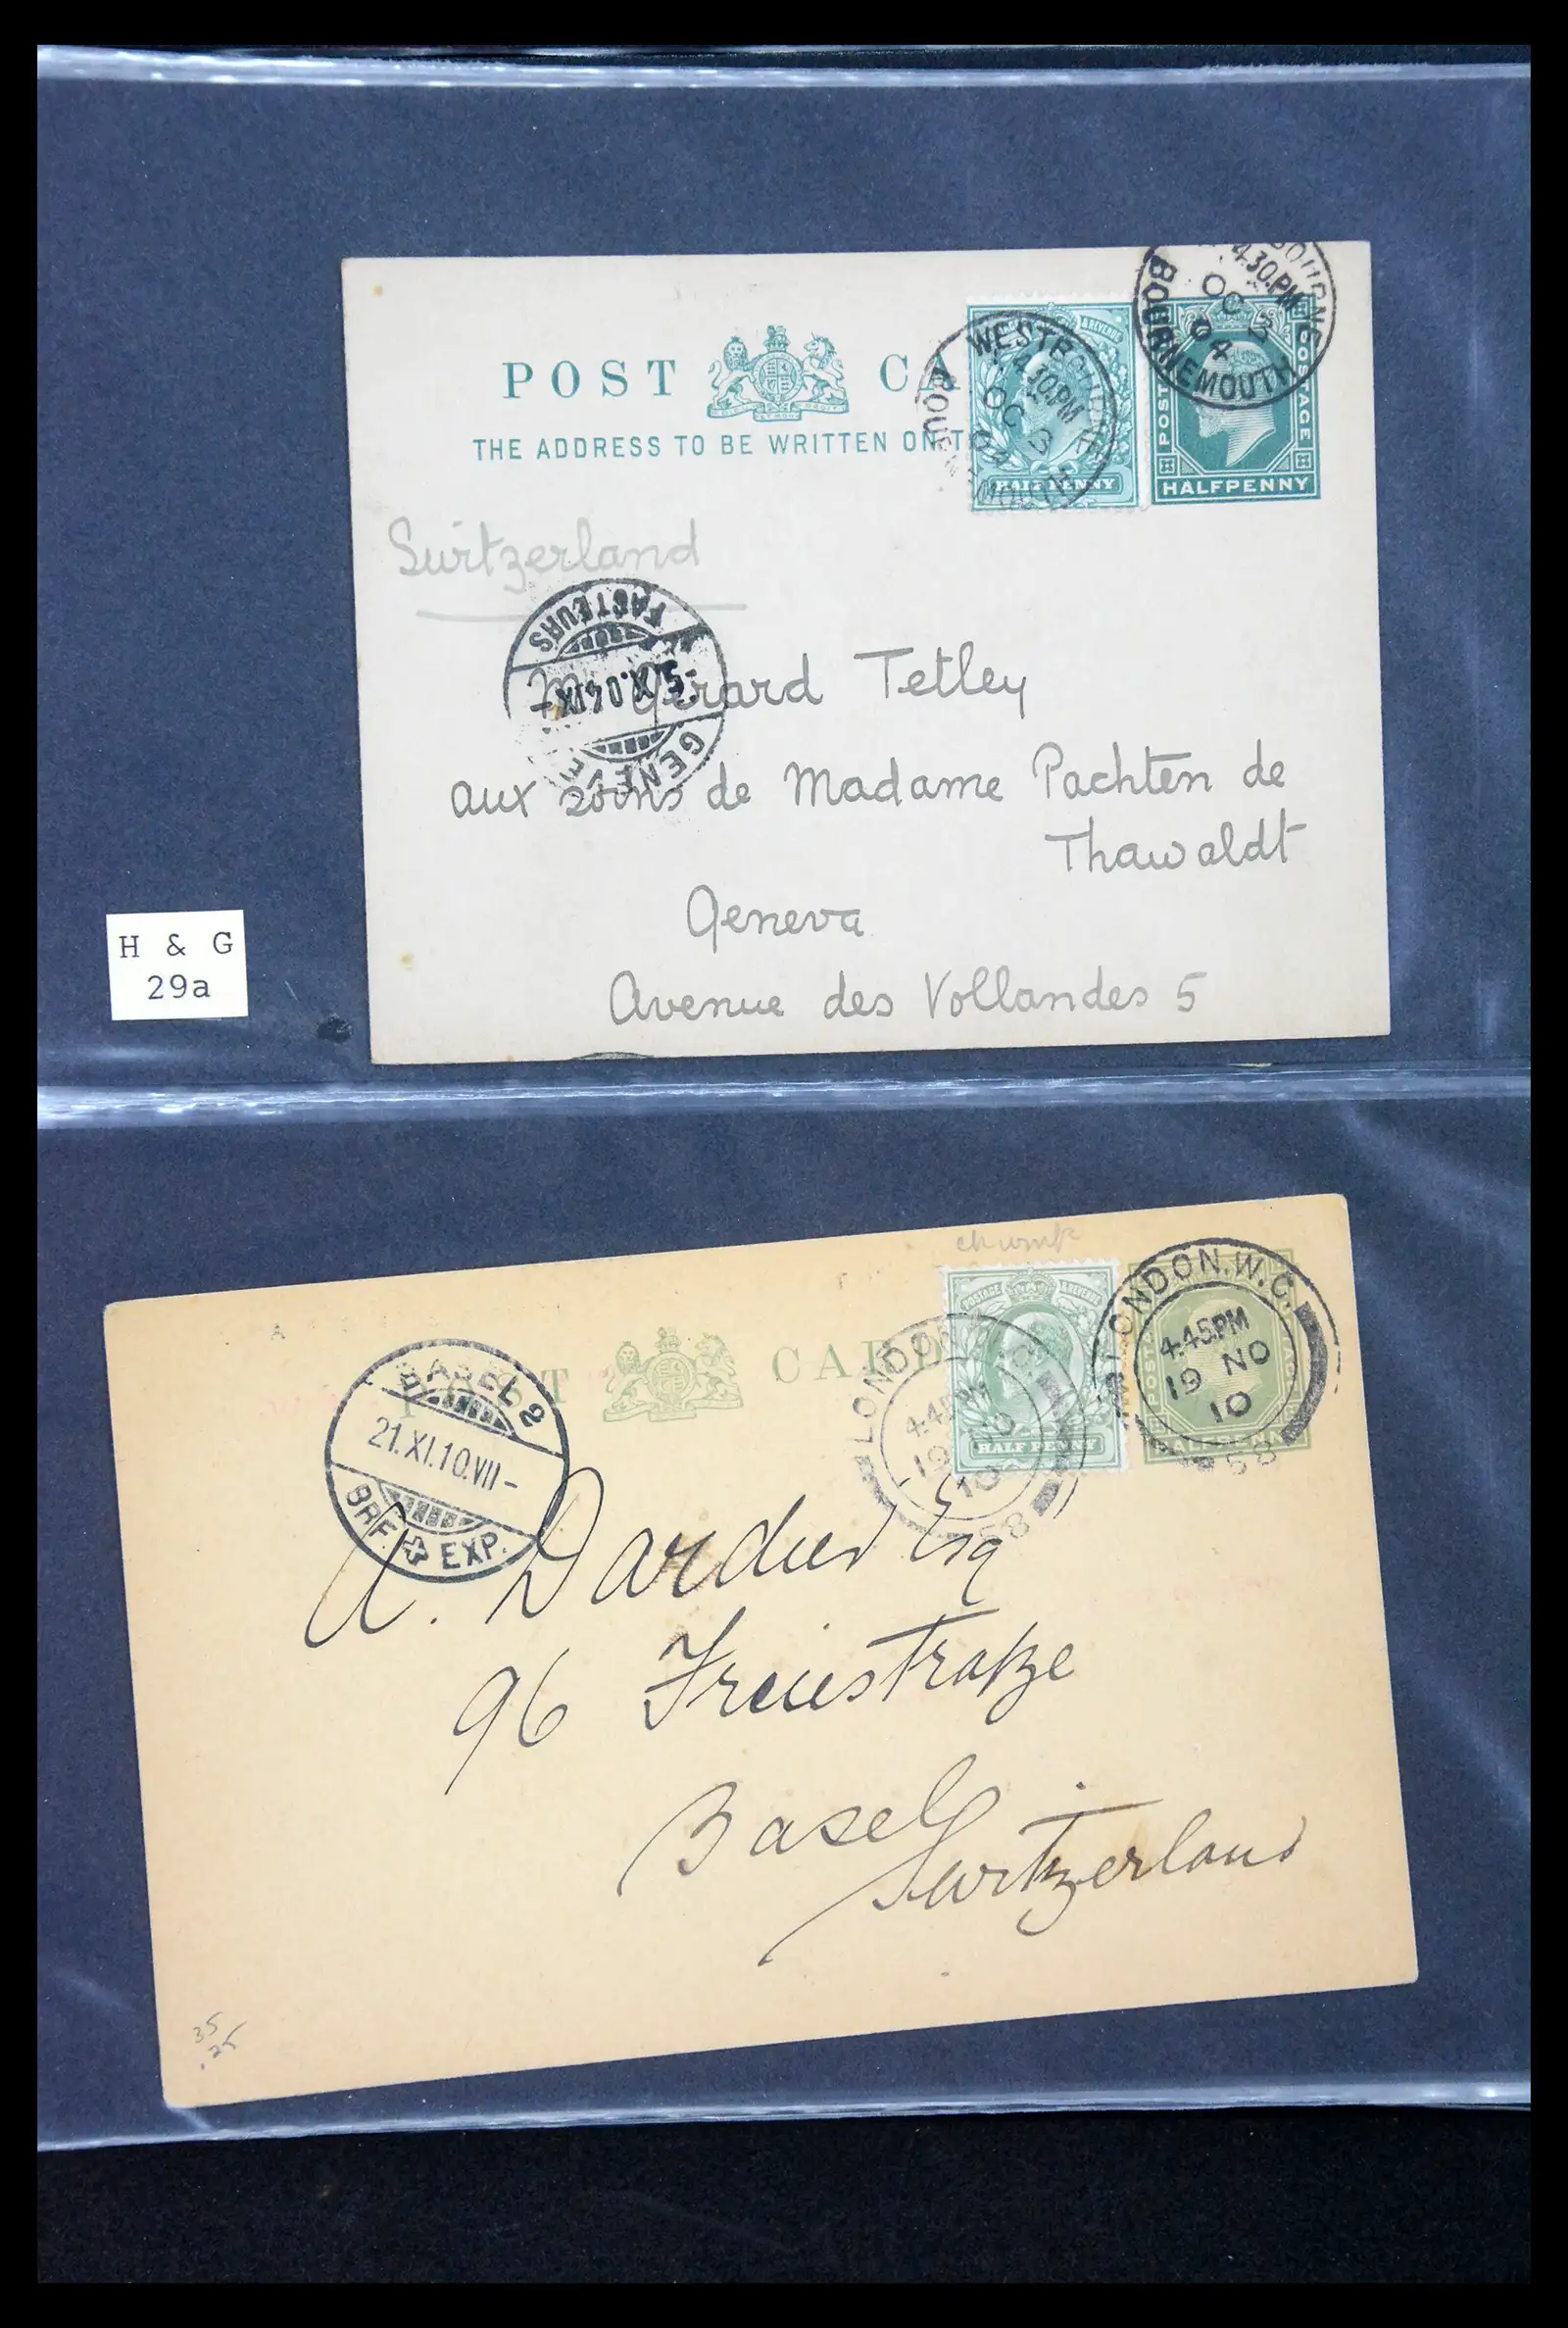 POST CA
THE ADDRESS TO BE WRITTEN ON T
POSTAGE & REVENUE
HALF PENNY
WESTBOURNE
4.30.PM
OC 3
04
BOURNEMOUTH
POSTAGE
HALFPENNY
4.30.PM
OC 3
04
BOURNEMOUTH
Switzerland
FACTEURS
-5.X.04.IX-
GENÈVE
Gerard Tetley
aux soins de Madame Pachten de
Thawaldt
Geneva
Avenue des Vollandes 5
H & G
29a
POST CARD
POSTAGE & REVENUE
HALF PENNY
LONDON.W.C.
4.45PM
19 NO
10
58
LONDON.W.C.
4.45PM
19 NO
10
58
POSTAGE
HALFPENNY
BASEL 2
21.XI.10.VII-
BRF. EXP.
A. Dardier Esq
96 Freiestraße
Basel
Switzerland
35
.25